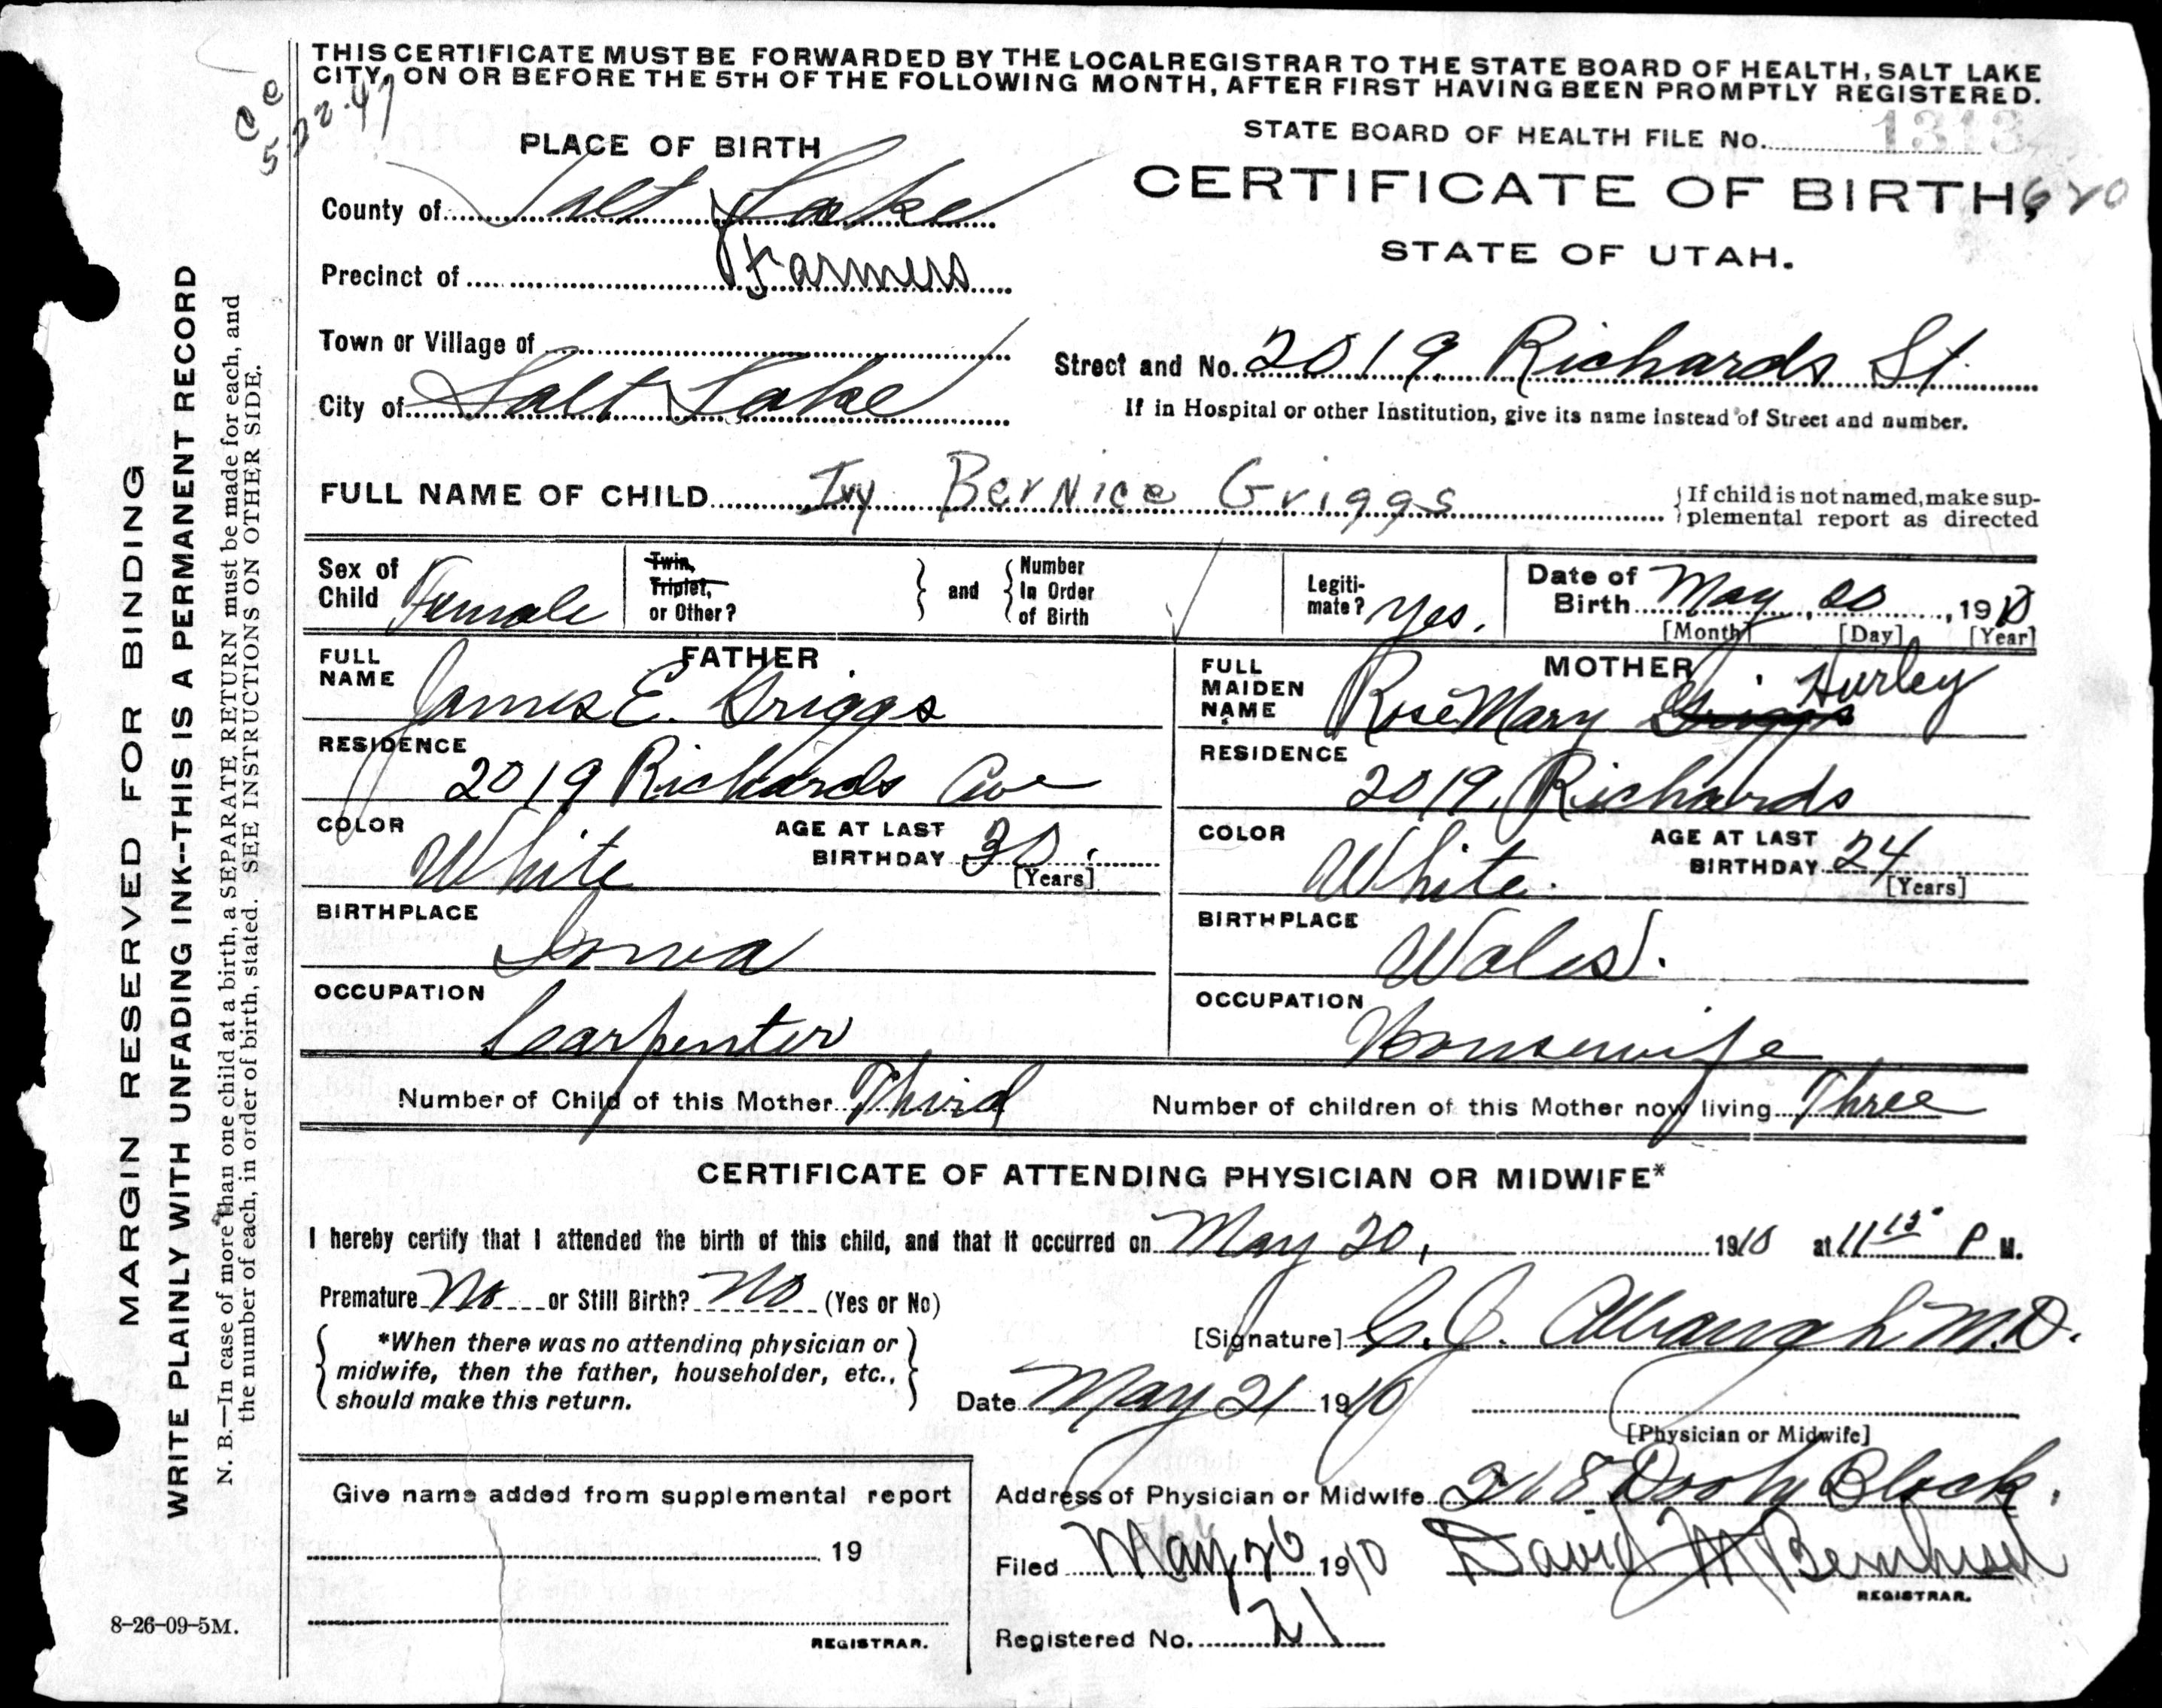 THIS CERTIFICATE MUST BE FORWARDED BY THE LOCAL REGISTRAR TO THE STATE BOARD OF HEALTH, SALT LAKE
CITY, ON OR BEFORE THE 5TH OF THE FOLLOWING MONTH, AFTER FIRST HAVING BEEN PROMPTLY REGISTERED.
5-22-47
STATE BOARD OF HEALTH FILE NO. 1313
PLACE OF BIRTH
CERTIFICATE OF BIRTH, 620
STATE OF UTAH.
County of Salt Lake
Precinct of Farmers
Town or Village of
Street and No. 2019 Richards St.
City of Salt Lake
If in Hospital or other Institution, give its name instead of Street and number.
FULL NAME OF CHILD Ivy Bernice Griggs
If child is not named, make sup-
plemental report as directed
Sex of Child Female
Twin, Triplet, or Other? and Number In Order of Birth
Legiti-mate? Yes.
Date of Birth May 20, 1910
[Month] [Day] [Year]
FATHER
FULL NAME James E. Griggs
RESIDENCE 2019 Richards Ave
COLOR White AGE AT LAST BIRTHDAY 30 [Years]
BIRTHPLACE Iowa
OCCUPATION Carpenter
MOTHER
FULL MAIDEN NAME Rose Mary Griggs Hurley
RESIDENCE 2019, Richards
COLOR White. AGE AT LAST BIRTHDAY 24 [Years]
BIRTHPLACE Wales.
OCCUPATION Housewife
Number of Child of this Mother Third Number of children of this Mother now living Three
CERTIFICATE OF ATTENDING PHYSICIAN OR MIDWIFE*
I hereby certify that I attended the birth of this child, and that it occurred on May 20, 1910 at 11 15 P M.
Premature No or Still Birth? No (Yes or No)
*When there was no attending physician or
midwife, then the father, householder, etc.,
should make this return.
[Signature] C. J. Albaugh M.D.
Date May 21 1910
[Physician or Midwife]
Address of Physician or Midwife 218 Dooly Block.
Filed May 26 1910 David M Bernhisel
REGISTRAR.
Registered No. 21
Give name added from supplemental report
19
REGISTRAR.
8-26-09-5M.
MARGIN RESERVED FOR BINDING
WRITE PLAINLY WITH UNFADING INK--THIS IS A PERMANENT RECORD
N. B.—In case of more than one child at a birth, a SEPARATE RETURN must be made for each, and
the number of each, in order of birth, stated. SEE INSTRUCTIONS ON OTHER SIDE.